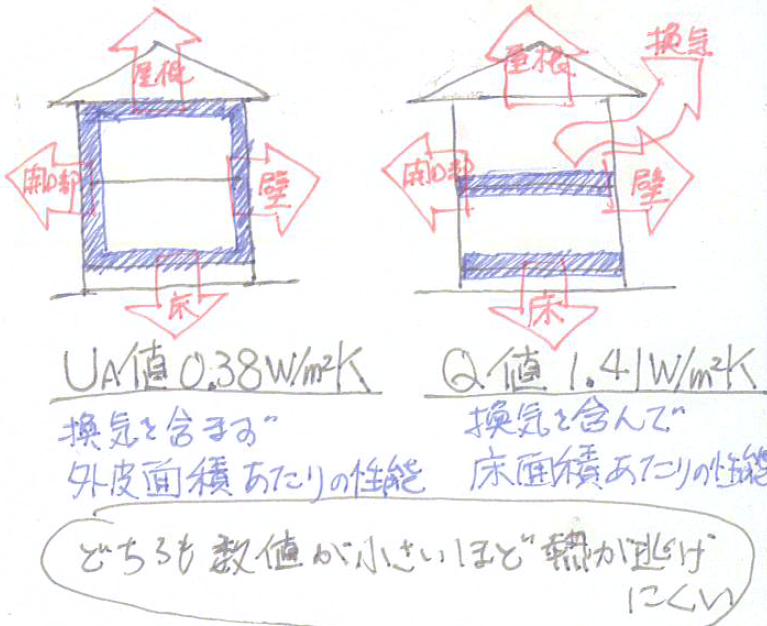 屋根
開口部
壁
床
屋根
換気
開口部
壁
床
UA値 0.38W/m²K
換気を含まず
外皮面積あたりの性能
Q値 1.41W/m²K
換気を含んで
床面積あたりの性能
どちらも数値が小さいほど熱が逃げ
にくい